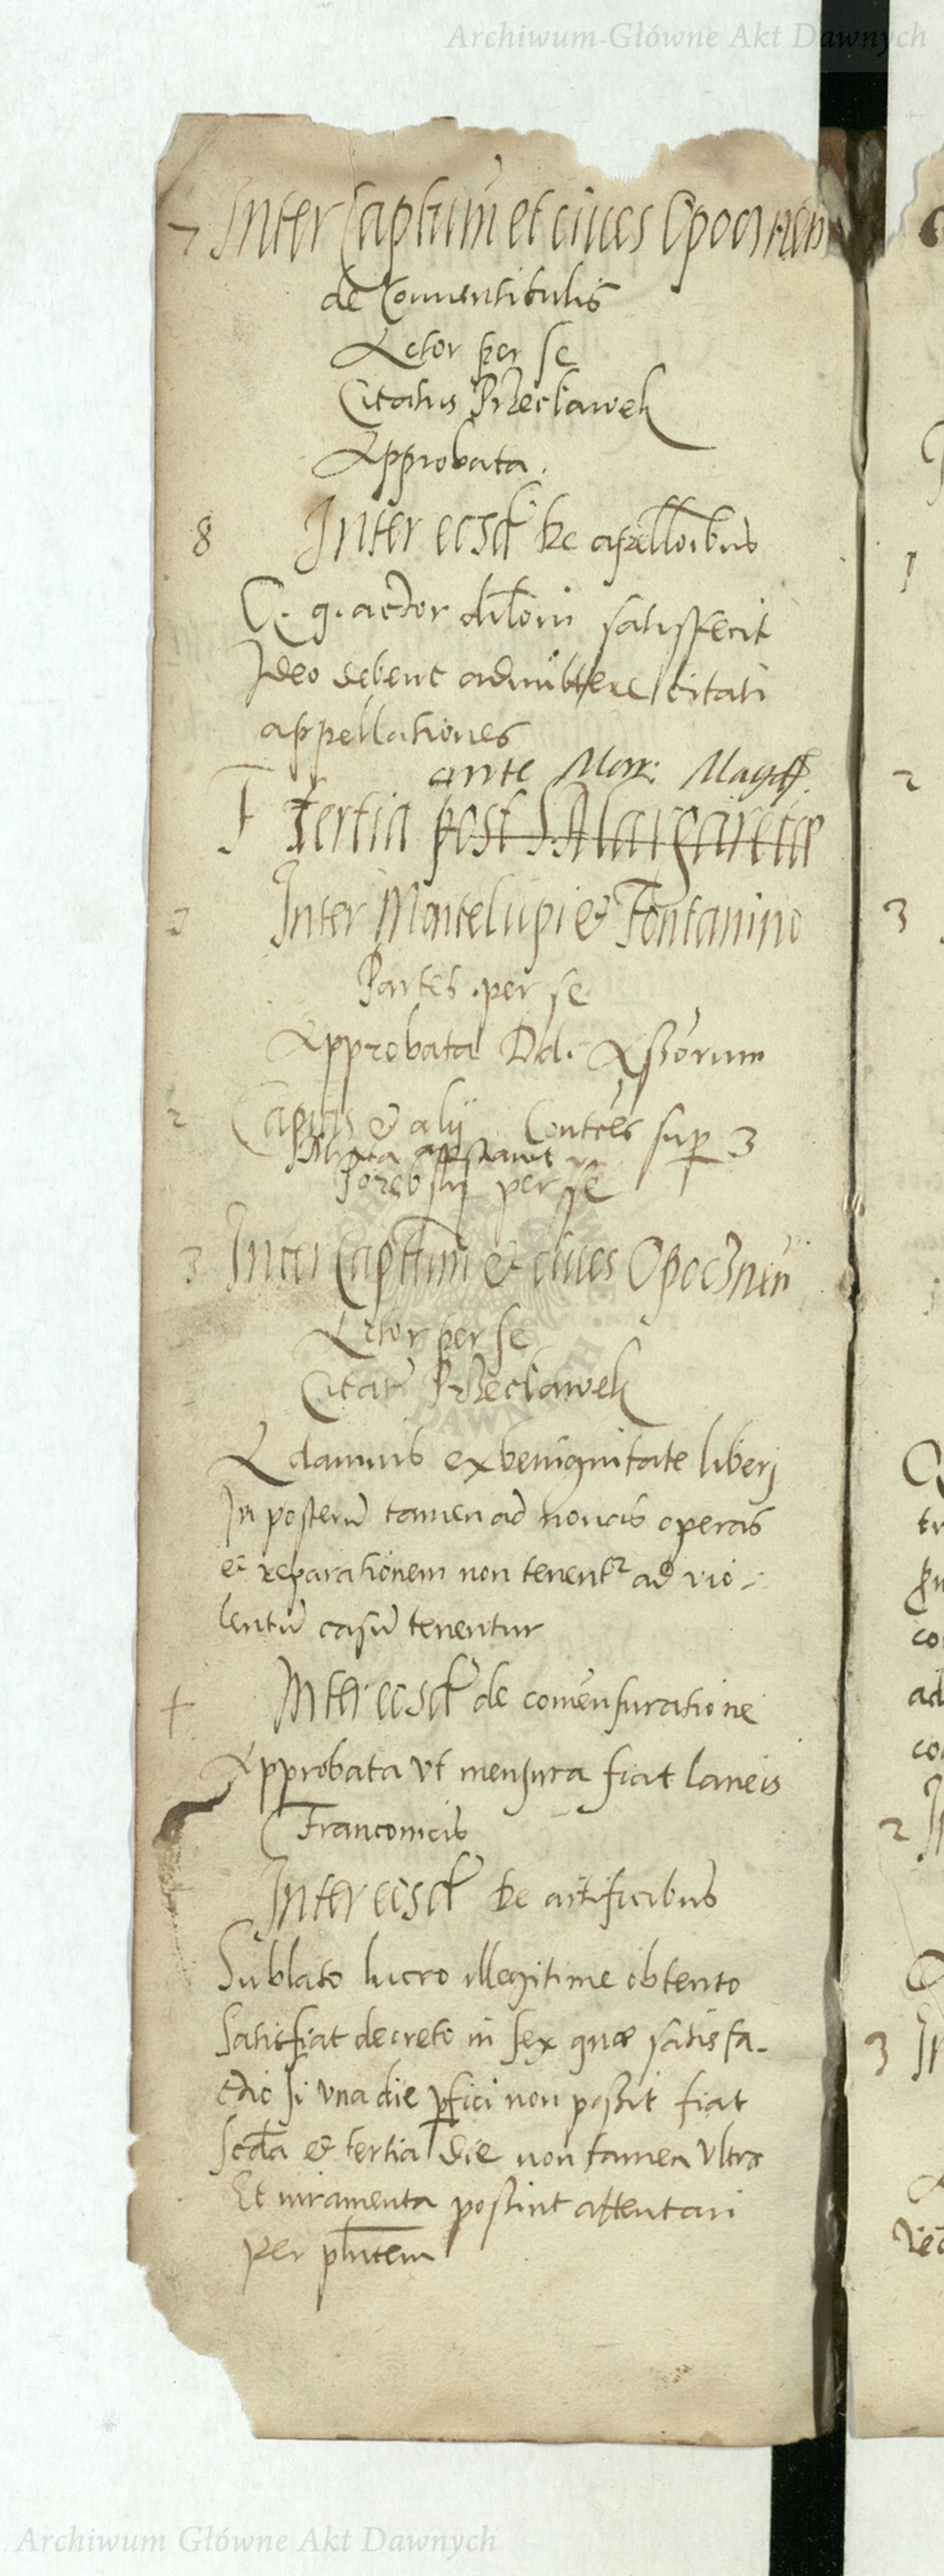 Archiwum Główne Akt Dawnych
7 Inter Captum et ciues Opocznen
de Conuenticulis
Actor per se
Citatus Przecławek
Approbata.
8 Inter eosd de apelloibus
Q. q. actor diloni satisfecit
Ideo debent admittere citati
appellationes
ante Mar: Magd.
F tertia post S. Margaretae
1 Inter Montelupi et Fontanino
Partes per se
Approbata Dd. Assorum
2 Captus et alij Contes sup 3
per se
3 Inter Captum et ciues Opocznen
Actor per se
Citat Przecławek
Adamus ex benignitate liberj
In posteru tamen ad nouas operas
et reparationem non tenentr ad vio-
lentu casu tenentur
Inter eosd de comensuratione
Approbata vt mensura fiat laneis
Franconicis
Inter eosd de artificibus
Sublato lucro illegitime obtento
Satisfiat decreto in sex quae satisfa-
ctio si vna die pfici non possit fiat
Scda et tertia die non tamen vltra
Et iuramenta possint attentari
per pntem
1
2
3
2
3
Archiwum Główne Akt Dawnych